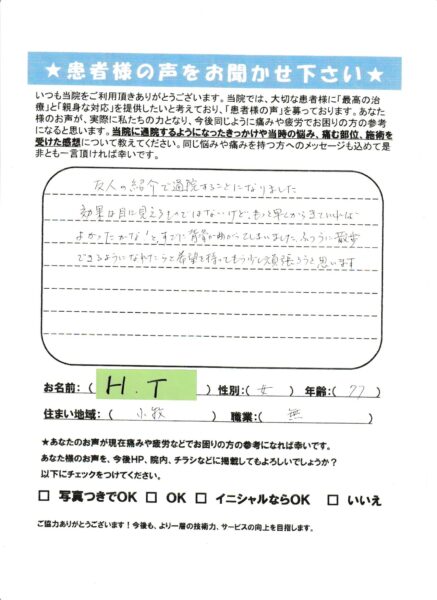 ★患者様の声をお聞かせ下さい★
いつも当院をご利用頂きありがとうございます。当院では、大切な患者様に「最高の治
療」と「親身な対応」を提供したいと考えており、「患者様の声」を募っております。あなた
様のお声が、実際に私たちの力となり、今後同じように痛みや疲労でお困りの方の参考
になると思います。当院に通院するようになったきっかけや当時の悩み、痛む部位、施術を
受けた感想について教えてください。同じ悩みや痛みを持つ方へのメッセージも込めて是
非とも一言頂ければ幸いです。
友人の紹介で通院することになりました
効果は目に見えるものではないけど、もっと早くから きていれば
よかったかな!と、すでに背骨が曲がってしまいました、ふつうに散歩
できるようになれたらと希望を持ってもう少し頑張ろうと思います
お名前:( H.T ) 性別:( 女 ) 年齢:( 77
住まい地域:( 小牧 職業:( 無 )
★あなたのお声が現在痛みや疲労などでお困りの方の参考になれば幸いです。
あなた様のお声を、今後HP、院内、チラシなどに掲載してもよろしいでしょうか?
以下にチェックをつけてください。
□ 写真つきでOK □ OK □ イニシャルならOK □ いいえ
ご協力ありがとうございます!今後も、より一層の技術力、サービスの向上を目指します。